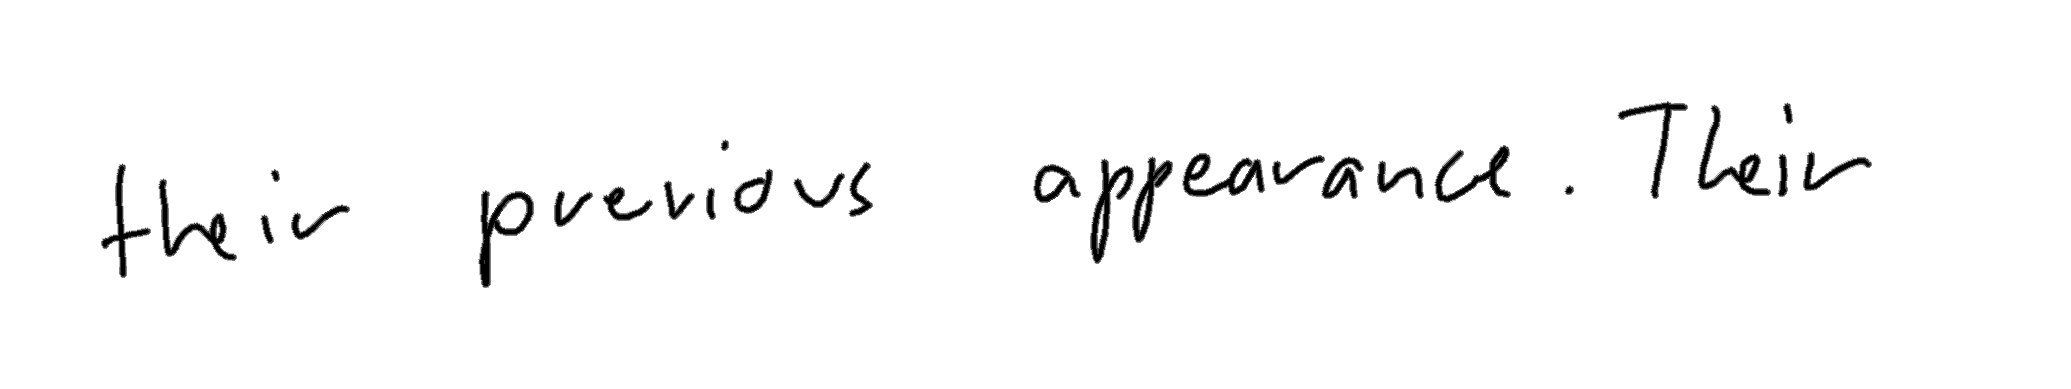 their previous appearance. Their